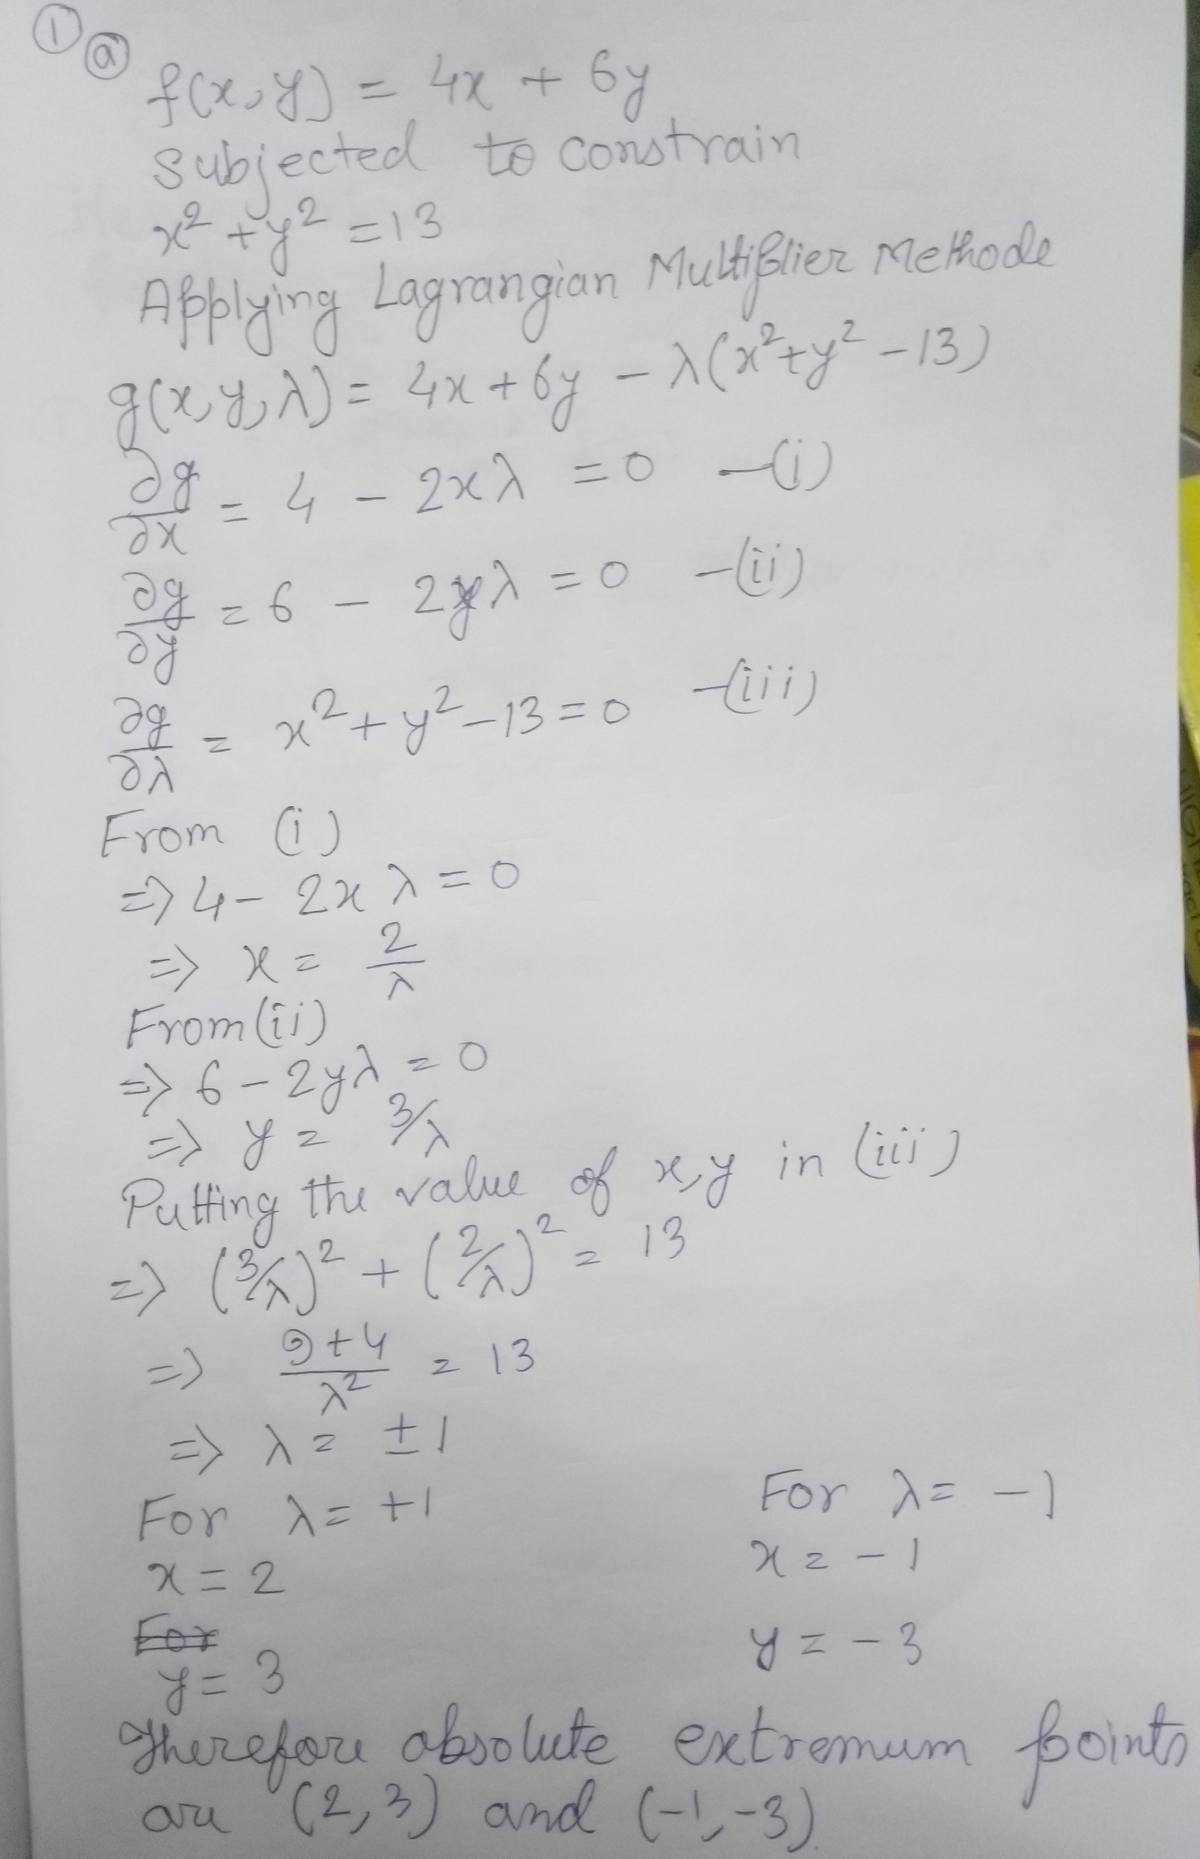 ① ⓐ
f(x,y) = 4x + 6y
subjected to constrain
x² + y² = 13
Applying Lagrangian Multiplier Methode
g(x,y,λ) = 4x + 6y - λ(x²+y² - 13)
∂g/∂x = 4 - 2xλ = 0 —(i)
∂g/∂y = 6 - 2yλ = 0 —(ii)
∂g/∂λ = x² + y² - 13 = 0 —(iii)
From (i)
⇒ 4 - 2xλ = 0
⇒ x = 2/λ
From (ii)
⇒ 6 - 2yλ = 0
⇒ y = 3/λ
Putting the value of x,y in (iii)
⇒ (3/λ)² + (2/λ)² = 13
⇒ (9+4)/λ² = 13
⇒ λ = ±1
For λ = +1
x = 2
For
y = 3
For λ = -1
x = -1
y = -3
Therefore absolute extremum points
are (2,3) and (-1,-3)